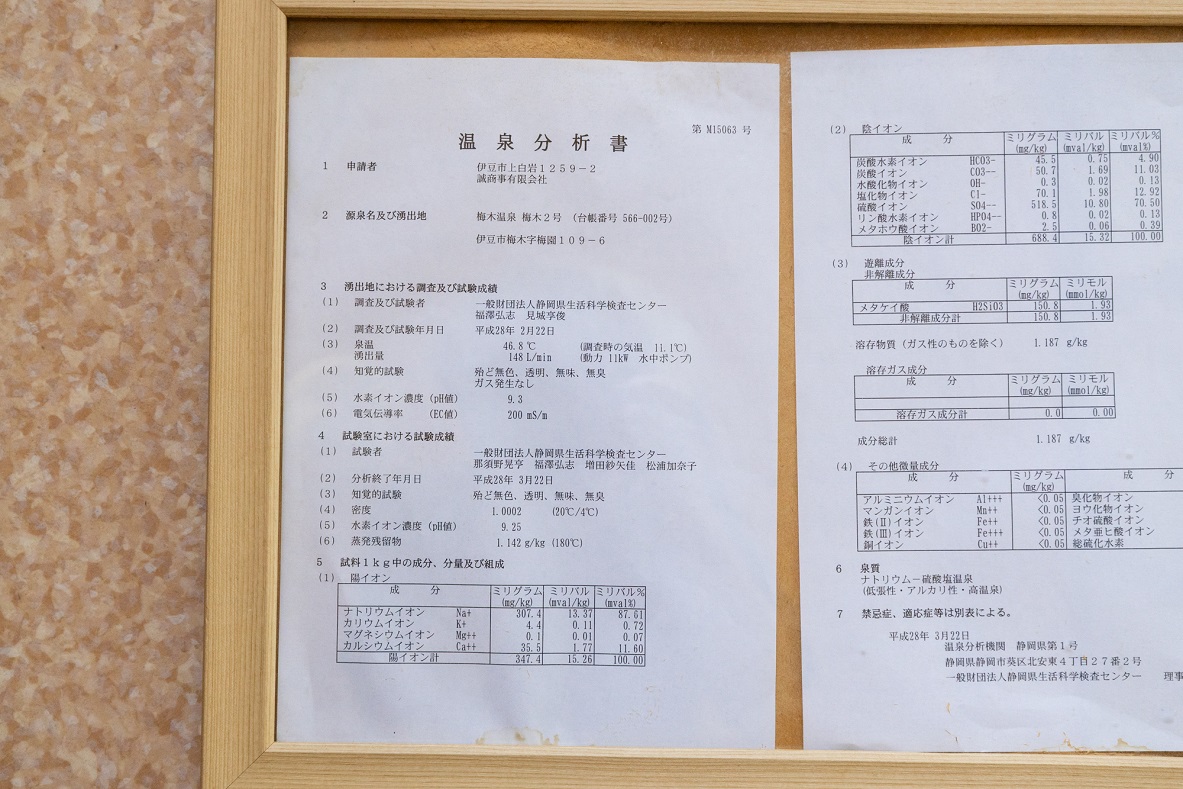 温泉分析書
第 M15063 号
1 申請者 伊豆市上白岩1259-2
誠商事有限会社
2 源泉名及び湧出地 梅木温泉 梅木2号 (台帳番号 566-002号)
伊豆市梅木字梅園109-6
3 湧出地における調査及び試験成績
(1) 調査及び試験者 一般財団法人静岡県生活科学検査センター
福澤弘志 見城享俊
(2) 調査及び試験年月日 平成28年 2月22日
(3) 泉温 46.8℃ (調査時の気温 11.1℃)
湧出量 148 L/min (動力 11kW 水中ポンプ)
(4) 知覚的試験 殆ど無色、透明、無味、無臭
ガス発生なし
(5) 水素イオン濃度 (pH値) 9.3
(6) 電気伝導率 (EC値) 200 mS/m
4 試験室における試験成績
(1) 試験者 一般財団法人静岡県生活科学検査センター
那須野晃亨 福澤弘志 増田紗矢佳 松浦加奈子
(2) 分析終了年月日 平成28年 3月22日
(3) 知覚的試験 殆ど無色、透明、無味、無臭
(4) 密度 1.0002 (20℃/4℃)
(5) 水素イオン濃度 (pH値) 9.25
(6) 蒸発残留物 1.142 g/kg (180℃)
5 試料1kg中の成分、分量及び組成
(1) 陽イオン
成 分 ミリグラム ミリバル ミリバル%
(mg/kg) (mval/kg) (mval%)
ナトリウムイオン Na+ 307.4 13.37 87.61
カリウムイオン K+ 4.4 0.11 0.72
マグネシウムイオン Mg++ 0.1 0.01 0.07
カルシウムイオン Ca++ 35.5 1.77 11.60
陽イオン計 347.4 15.26 100.00
(2) 陰イオン
成 分 ミリグラム ミリバル ミリバル%
(mg/kg) (mval/kg) (mval%)
炭酸水素イオン HCO3- 45.5 0.75 4.90
炭酸イオン CO3-- 50.7 1.69 11.03
水酸化物イオン OH- 0.3 0.02 0.13
塩化物イオン Cl- 70.1 1.98 12.92
硫酸イオン SO4-- 518.5 10.80 70.50
リン酸水素イオン HPO4-- 0.8 0.02 0.13
メタホウ酸イオン BO2- 2.5 0.06 0.39
陰イオン計 688.4 15.32 100.00
(3) 遊離成分
非解離成分
成 分 ミリグラム ミリモル
(mg/kg) (mmol/kg)
メタケイ酸 H2SiO3 150.8 1.93
非解離成分計 150.8 1.93
溶存物質 (ガス性のものを除く) 1.187 g/kg
溶存ガス成分
成 分 ミリグラム ミリモル
(mg/kg) (mmol/kg)
溶存ガス成分計 0.0 0.00
成分総計 1.187 g/kg
(4) その他微量成分
成 分 ミリグラム 成 分
(mg/kg)
アルミニウムイオン Al+++ <0.05 臭化物イオン
マンガンイオン Mn++ <0.05 ヨウ化物イオン
鉄(Ⅱ)イオン Fe++ <0.05 チオ硫酸イオン
鉄(Ⅲ)イオン Fe+++ <0.05 メタ亜ヒ酸イオン
銅イオン Cu++ <0.05 総硫化水素
6 泉質
ナトリウム-硫酸塩温泉
(低張性・アルカリ性・高温泉)
7 禁忌症、適応症等は別表による。
平成28年 3月22日
温泉分析機関 静岡県第1号
静岡県静岡市葵区北安東4丁目27番2号
一般財団法人静岡県生活科学検査センター 理事